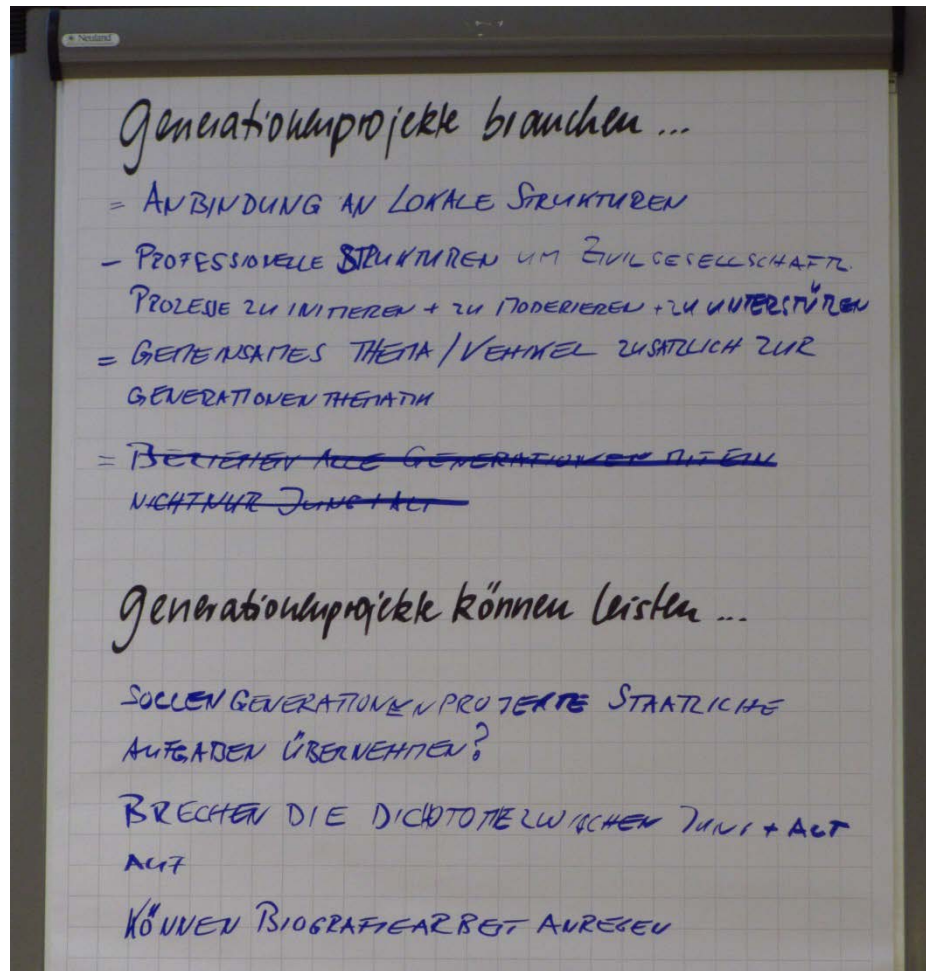 Neuland
Generationenprojekte brauchen ...
= ANBINDUNG AN LOKALE STRUKTUREN
- PROFESSIONELLE STRUKTUREN UM ZIVILGESELLSCHAFTL.
PROZESSE ZU INITIIEREN + ZU MODERIEREN + ZU UNTERSTÜTZEN
= GEMEINSAMES THEMA / VEHIKEL ZUSÄTZLICH ZUR
GENERATIONENTHEMATIK
= BEZIEHEN ALLE GENERATIONEN MIT EIN
NICHT NUR JUNG + ALT
Generationenprojekte können leisten ...
SOLLEN GENERATIONENPROJEKTE STAATLICHE
AUFGABEN ÜBERNEHMEN?
BRECHEN DIE DICHOTOMIE ZWISCHEN JUNG + ALT
AUF
KÖNNEN BIOGRAFIEARBEIT ANREGEN